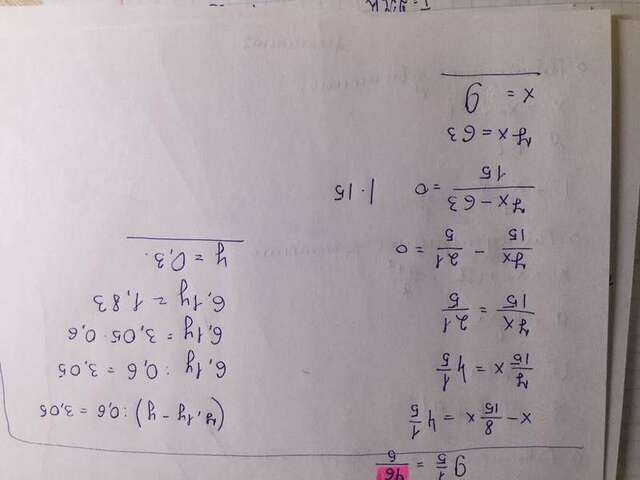 9 1/5 = 46/5
x - 8/15 x = 4 1/5
7/15 x = 4 1/5
7x/15 = 21/5
7x/15 - 21/5 = 0
7x - 63/15 = 0 | · 15
7x = 63
x = 9
(7,1y - y) : 0,6 = 3,05
6,1y : 0,6 = 3,05
6,1y = 3,05 · 0,6
6,1y = 1,83
y = 0,3.